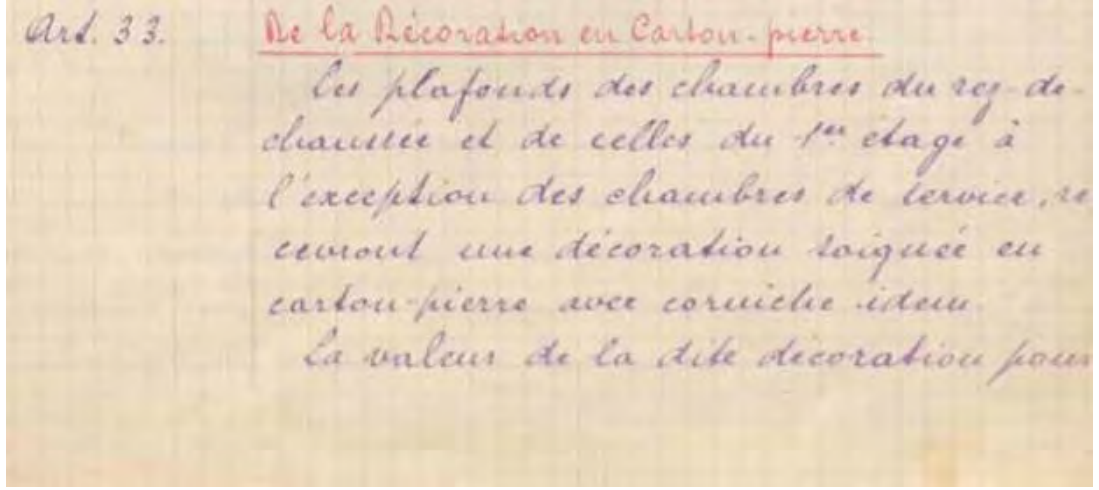 Art. 33. De la Décoration en Carton-pierre
Les plafonds des chambres du rez-de-
chaussée et de celles du 1er étage à
l'exception des chambres de service, re
cevront une décoration soignée en
carton-pierre avec corniche idem.
La valeur de la dite décoration pour